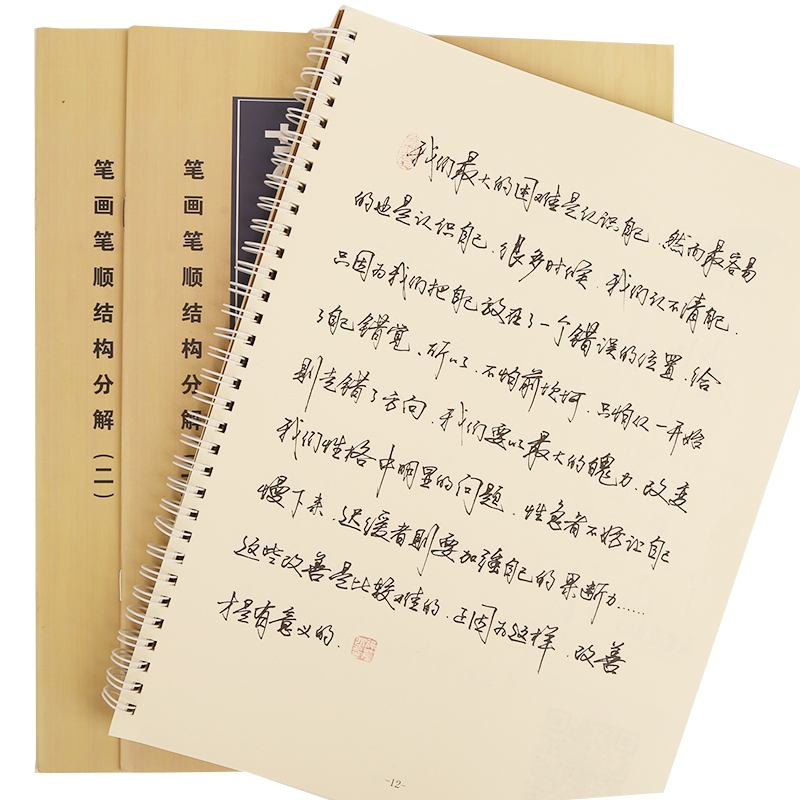 笔画笔顺结构分解（二）
笔画笔顺结构分解
我们最大的困难是认识自己，然而最容易
的也是认识自己．很多时候，我们认不清自己，
只因为我们把自己放在了一个错误的位置，给
了自己错觉．所以，不怕前路坎坷，只怕从一开始
则走错了方向．我们要以最大的魄力，改变
我们性格中明显的问题，性急者不妨让自己
慢下来，迟缓者则要加强自己的果断力……
这些改善是比较难的．正因为这样，改善
才是有意义的．
-12-